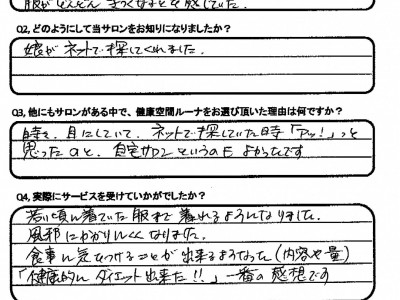 服がどんどんきつくなることを感じていた.
Q2, どのようにして当サロンをお知りになりましたか?
娘がネットで探してくれました.
Q3, 他にもサロンがある中で、健康空間ルーナをお選び頂いた理由は何ですか?
時々、目にしていて、ネットで探していた時「アッ!」っと
思ったのと、自宅サロンというのもよかったです
Q4, 実際にサービスを受けていかがでしたか?
若い頃に着ていた服まで着れるようになりました.
風邪にかかりにくくなりました.
食事に気をつけることが出来るようなった(内容や量)
「健康的にダイエット出来た!!」一番の感想です